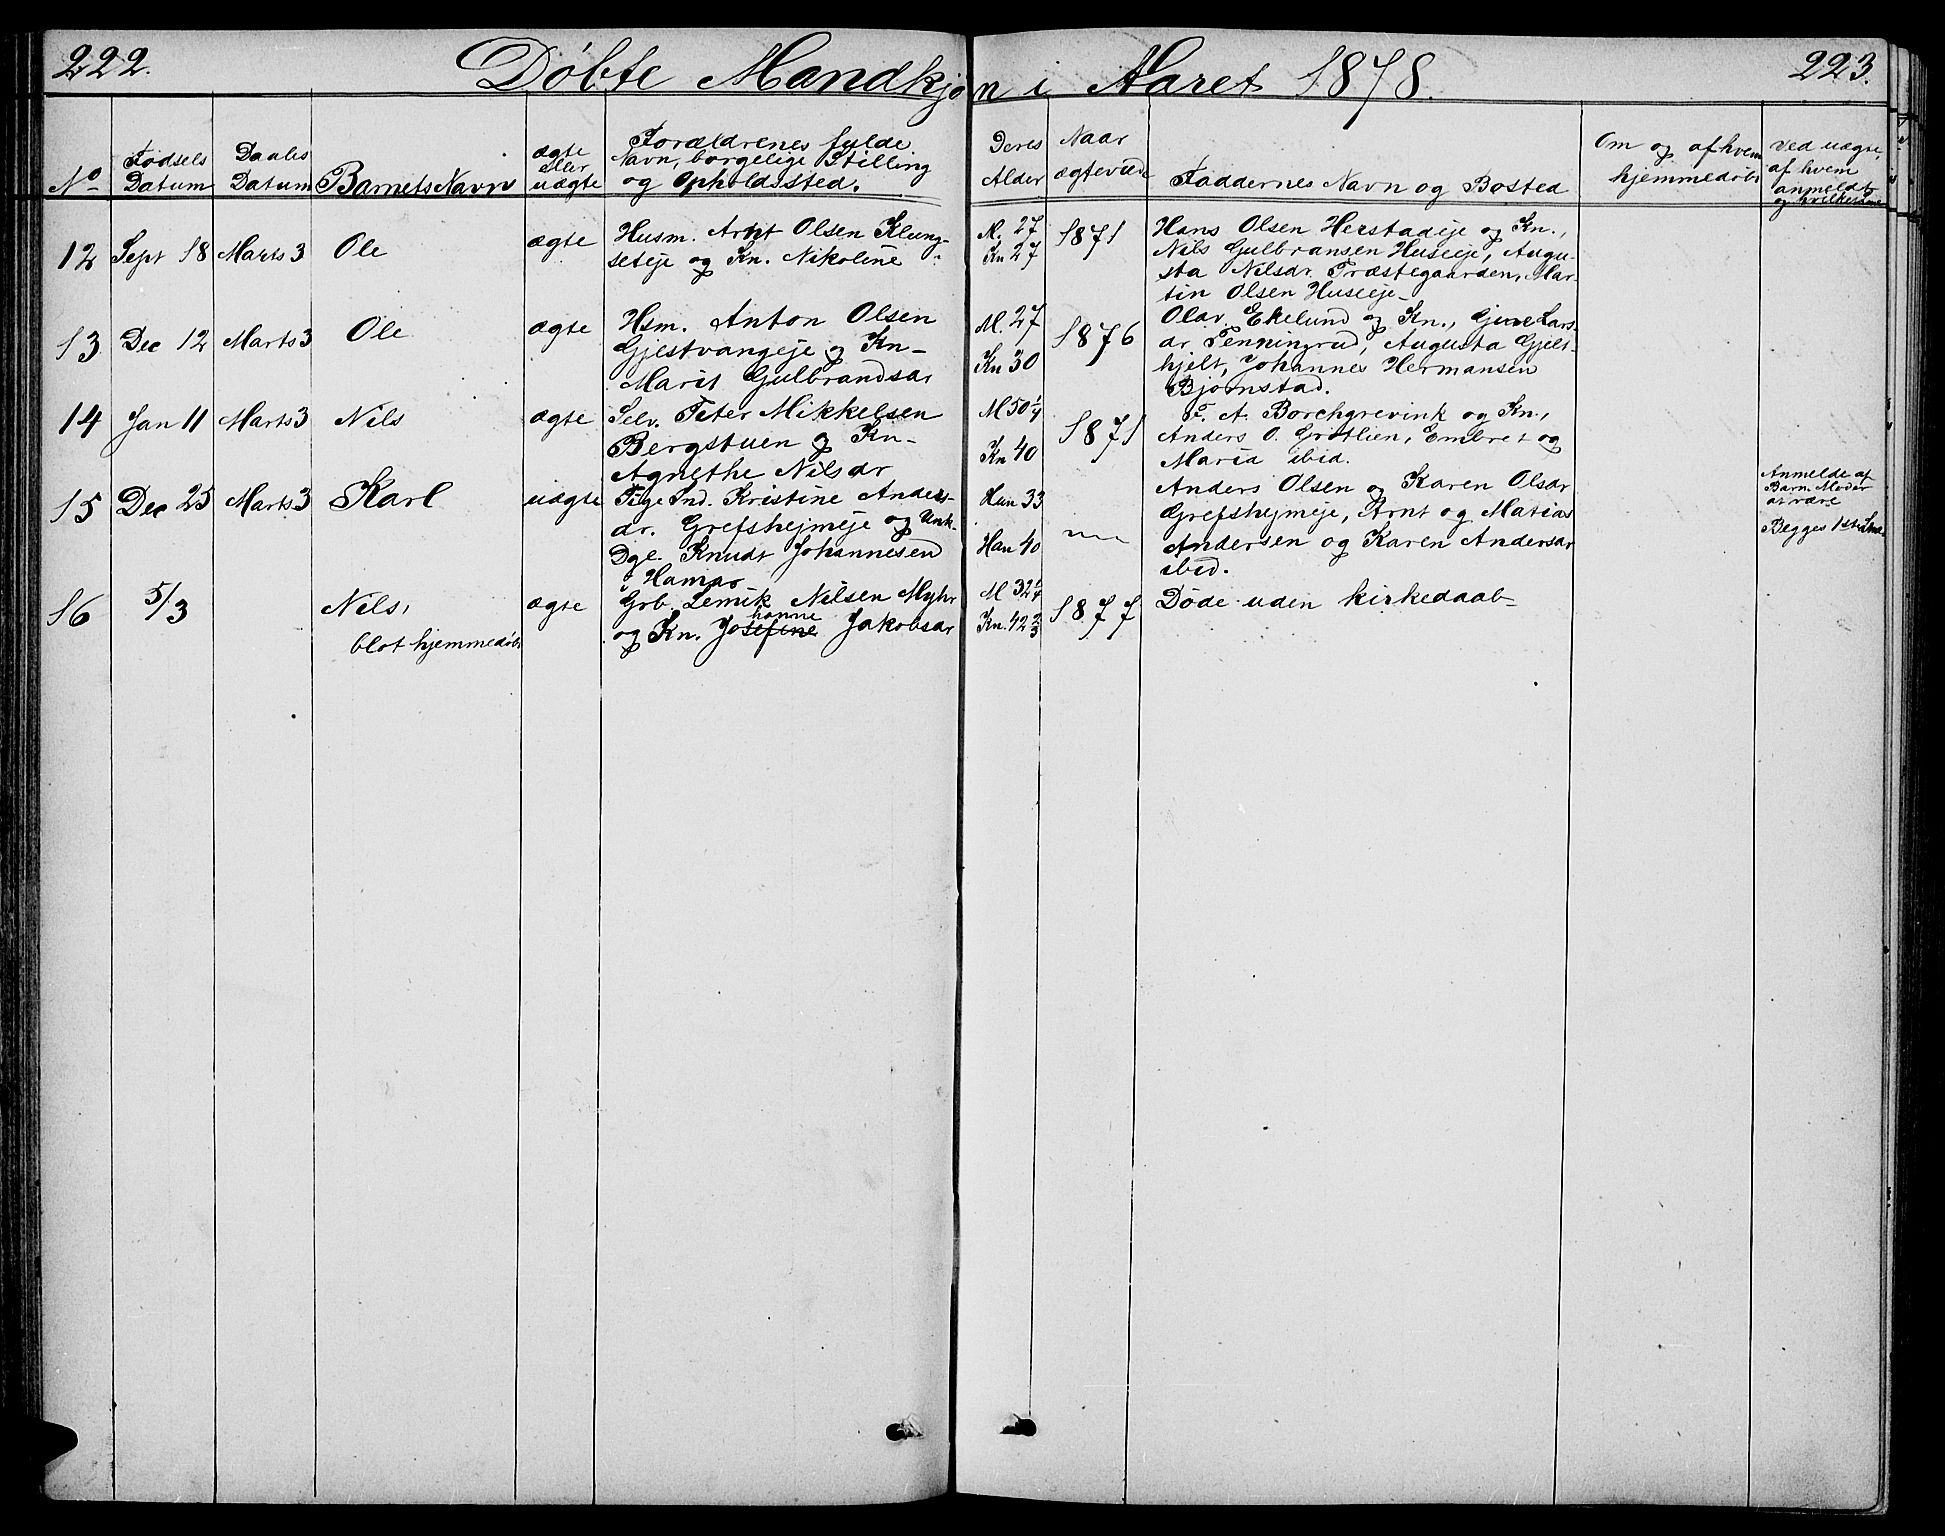 222.
Døbte Mandkjøn i Aaret 1878.
223.
No
Fødsels Datum
Daabs Datum
Barnets Navn
ægte eller uægte
Forældrenes fulde
Navn, borgelige Stilling
og Opholdssted.
Deres Alder
Naar ægteviede
Faddernes Navn og Bosted
Om og af hvem
hjemmedøbt
Ved uægte,
af hvem
anmeldt
12 Sept 18 Marts 3 Ole ægte
Husm. Arnt Olsen Klung-
seteje og Kn. Nikoline
M. 27
Kn 27
1871
Hans Olsen Herstadeje og Kn.,
Nils Gulbransen Huseeje, Augu-
sta Nilsdr. Præstegaarden, Mar-
tin Olsen Huseeje-
13 Dec 12 Marts 3 Ole ægte
Hsm. Anton Olsen
Gjestvangeje og Kn-
Marit Gulbrandsdr
M. 27
Kn 30
1876
Olav Ekelund og Kn., Gine Lars-
dr Penningrud, Augusta Gjels-
hjelt, Johannes Hermansen
Bjørnstad.
14 Jan 11 Marts 3 Nils ægte
Selv. Peter Mikkelsen
Bergstuen og Kn-
Agnethe Nilsdr
M 50 1/4
Kn 40
1871
F. A. Borchgrevink og Kn.,
Anders O. Grøtlien, Embret og
Maria ibid.
15 Dec 25 Marts 3 Karl uægte
Pige Ind. Kristine Anders-
dr. Grefshejmeje og Unk.
Dgl. Knudt Johannesen
Hamar
Hun 33
Han 40
Anders Olsen og Karen Olsdr
Grefshejmeje, Arnt og Matias
Andersen og Karen Andersdr
ibid.
Anmelde af
Barn. Moder
at være
Begges 1ste
16 5/3 Nils,
blot hjemmedøbt
ægte
Grb. Lemik Nilsen Myhr
hanne
og Kn. Josefine Jakobsdr
M 32 1/4
Kn. 42 2/3
1877
Døde uden kirkedaab-